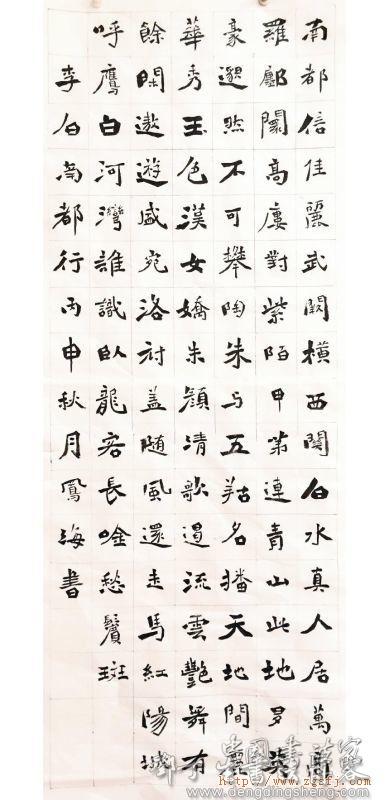 南都信佳麗武闕橫西關白水真人居萬商
羅鄽闤高廔對紫陌甲第連青山此地多英
豪邈然不可攀陶朱与五羖名播天地間麗
華秀玉色漢女嬌朱顏清歌遏流雲艷舞有
餘閑遨遊盛宛洛冠盖随風還走馬紅陽城
呼鷹白河灣誰識臥龍客長唫愁鬢斑
李白南都行丙申秋月鳳海書
http://www.zgsfj.com
www.dengdingsheng.com